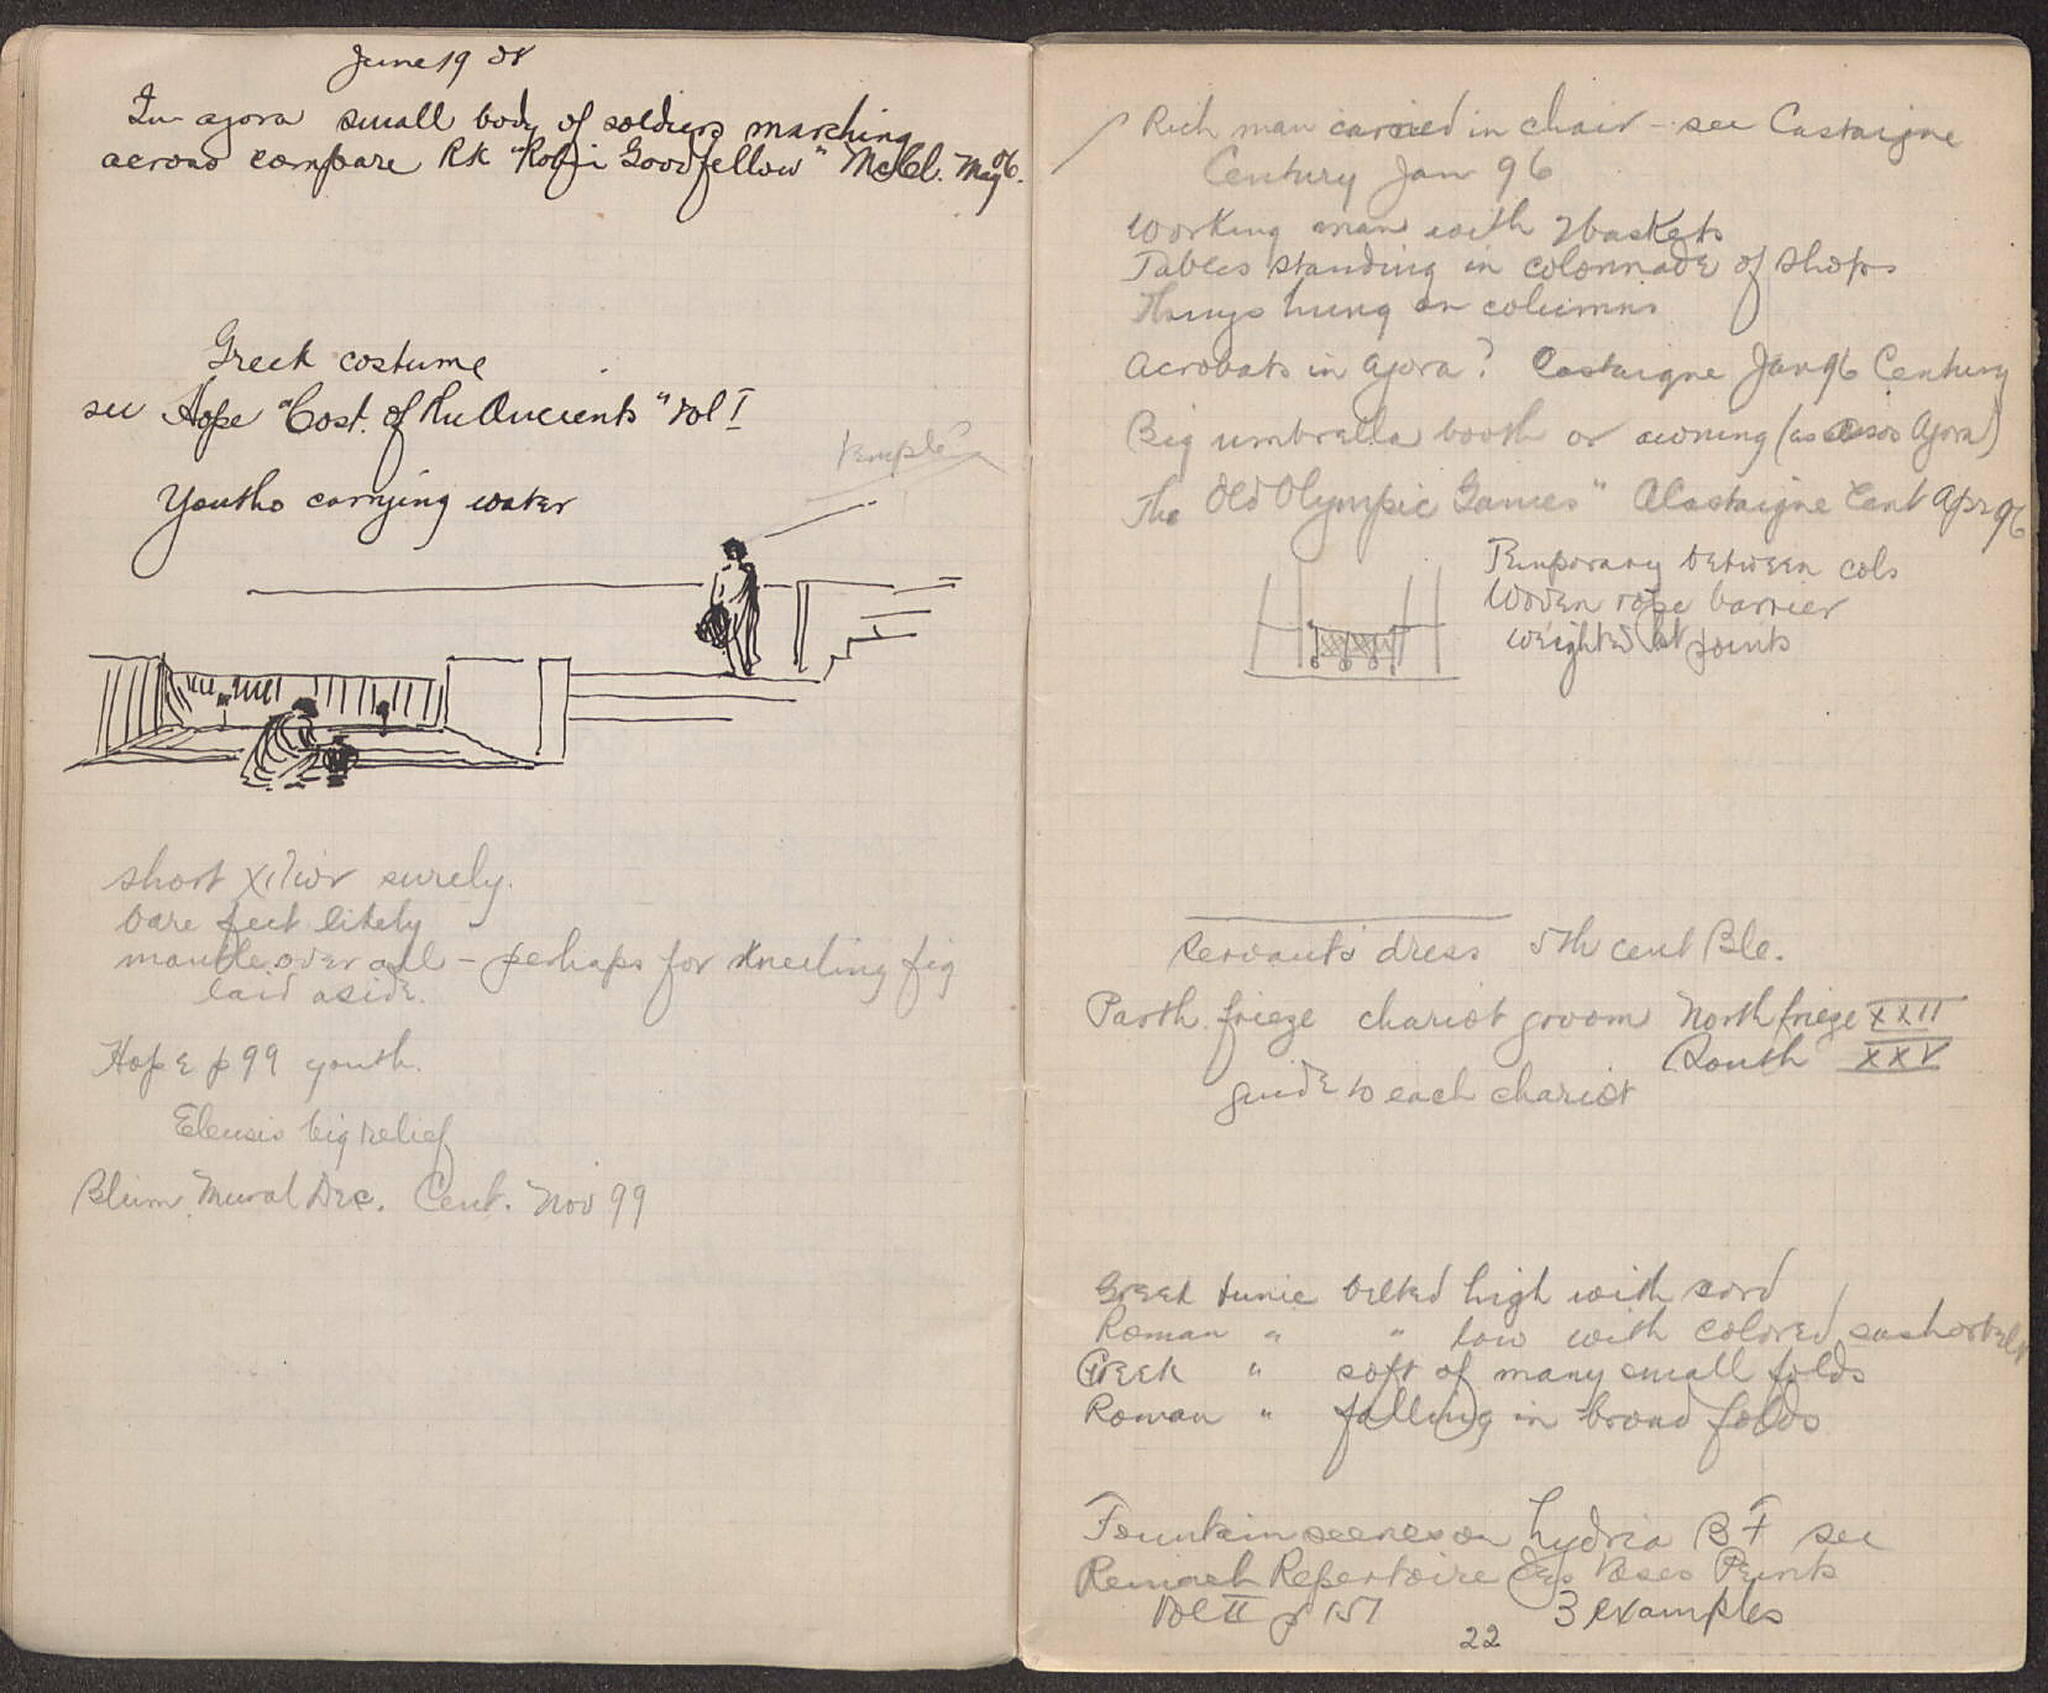 June 19 08
In agora small body of soldiers marching
across compare RK "Robin Goodfellow" McCl. May 06.
Greek costume
see Hope "Cost. of the Ancients" Vol I
temple
Youths carrying water
short χιτων surely.
bare feet likely
mantle over all - perhaps for kneeling fig
laid aside.
Hope p 99 youth.
Eleusis big relief
Blum Mural Dec. Cent. Nov 99
Rich man carried in chair - see Castaigne
Century Jan 96
Working man with 2 baskets
Tables standing in colonnade of shops
Things hung on columns
Acrobats in agora? Castaigne Jan 96 Century
Big umbrella booth or awning (as Assos Agora)
The Old Olympic Games" A Castaigne Cent Apr 96
Temporary between cols
Woven rope barrier
weighted at joints
Servants dress 5th cent B.C.
Parth. frieze chariot groom North frieze XXII
South XXV
guide to each chariot
Greek tunic belted high with cord
Roman " " low with colored sash or belt
Greek " soft of many small folds
Roman " falling in broad folds
Fountain scenes on hydria B F see
Reinach Repertoire des Vases Peints
Vol II p 151 3 examples
22